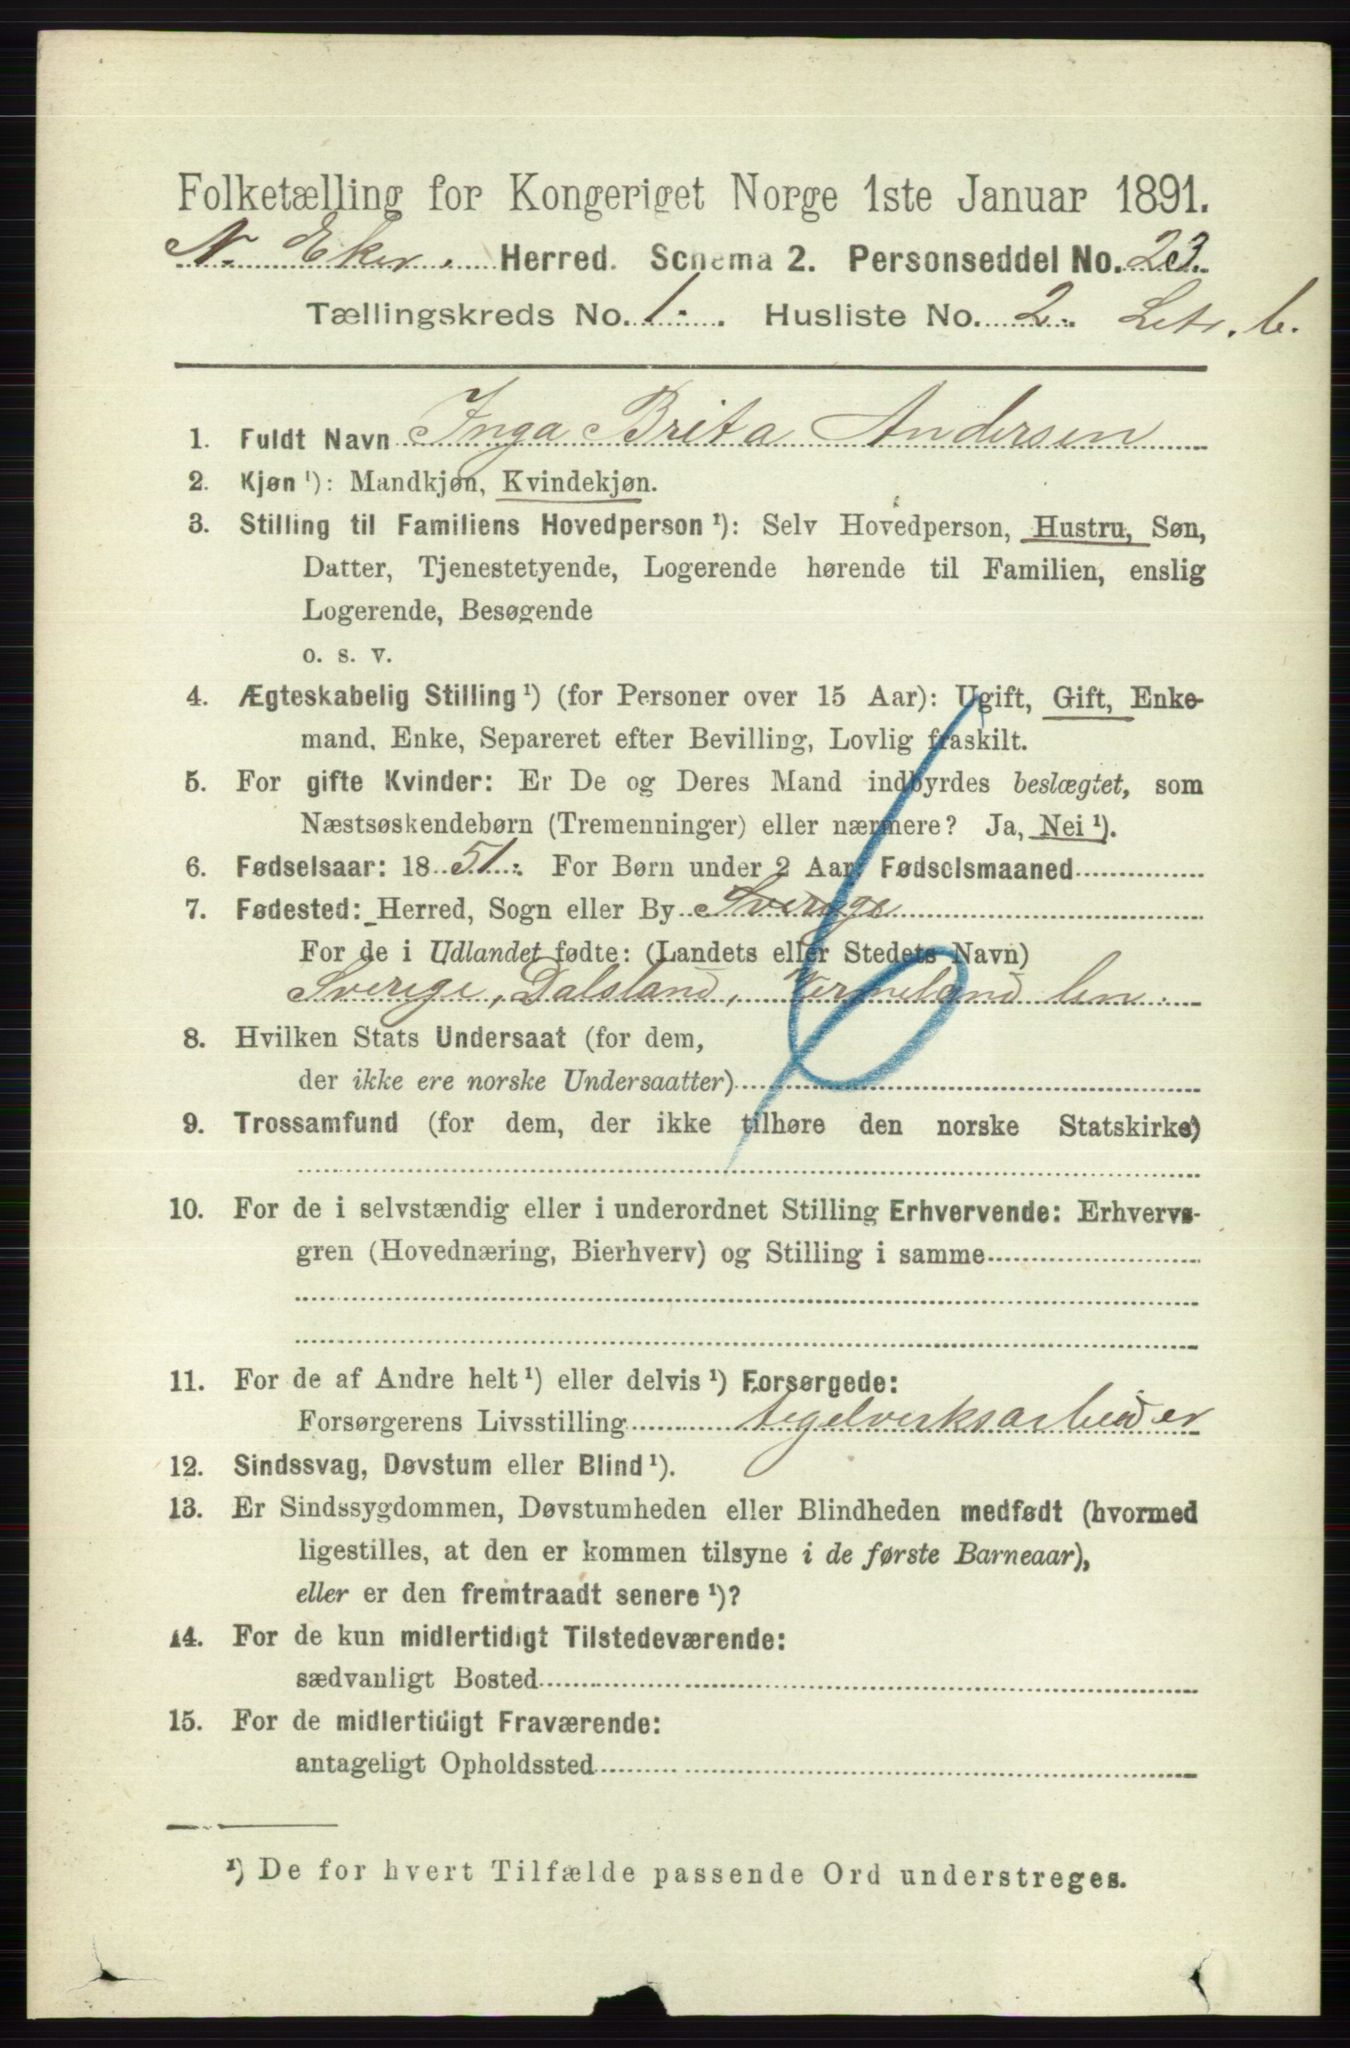 Folketælling for Kongeriget Norge 1ste Januar 1891.
N. Eker. Herred. Schema 2. Personseddel No. 23.
Tællingskreds No. 1. Husliste No. 2. Litr. b.
1. Fuldt Navn Inga Brita Andersen
2. Kjøn ¹): Mandkjøn, Kvindekjøn.
3. Stilling til Familiens Hovedperson ¹): Selv Hovedperson, Hustru, Søn,
Datter, Tjenestetyende, Logerende hørende til Familien, enslig
Logerende, Besøgende
o. s. v.
4. Ægteskabelig Stilling ¹) (for Personer over 15 Aar): Ugift, Gift, Enke-
mand, Enke, Separeret efter Bevilling, Lovlig fraskilt.
5. For gifte Kvinder: Er De og Deres Mand indbyrdes beslægtet, som
Næstsøskendebørn (Tremenninger) eller nærmere? Ja, Nei ¹).
6. Fødselsaar: 1851. For Børn under 2 Aar: Fødselsmaaned
7. Fødested: Herred, Sogn eller By Sverige
For de i Udlandet fødte: (Landets eller Stedets Navn)
Sverige, Dalsland, Vermeland len.
8. Hvilken Stats Undersaat (for dem,
der ikke ere norske Undersaatter)
9. Trossamfund (for dem, der ikke tilhøre den norske Statskirke)
10. For de i selvstændig eller i underordnet Stilling Erhvervende: Erhvervs-
gren (Hovednæring, Bierhverv) og Stilling i samme
11. For de af Andre helt ¹) eller delvis ¹) Forsørgede:
Forsørgerens Livsstilling tegelverksarbeider
12. Sindssvag, Døvstum eller Blind ¹).
13. Er Sindssygdommen, Døvstumheden eller Blindheden medfødt (hvormed
ligestilles, at den er kommen tilsyne i de første Barneaar),
eller er den fremtraadt senere ¹)?
14. For de kun midlertidigt Tilstedeværende:
sædvanligt Bosted
15. For de midlertidigt Fraværende:
antageligt Opholdssted
¹) De for hvert Tilfælde passende Ord understreges.